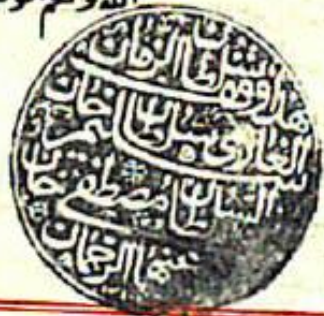 هذا وقف سلطان الزمان
الغازي سلطان سليم خان
بن السلطان مصطفى خان
عنهما الرحمن